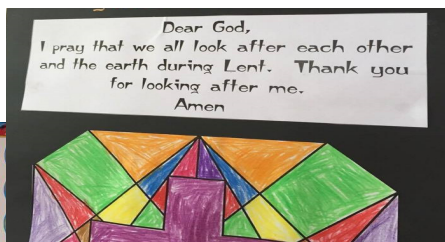 Dear God,
I pray that we all look after each other
and the earth during Lent. Thank you
for looking after me.
Amen